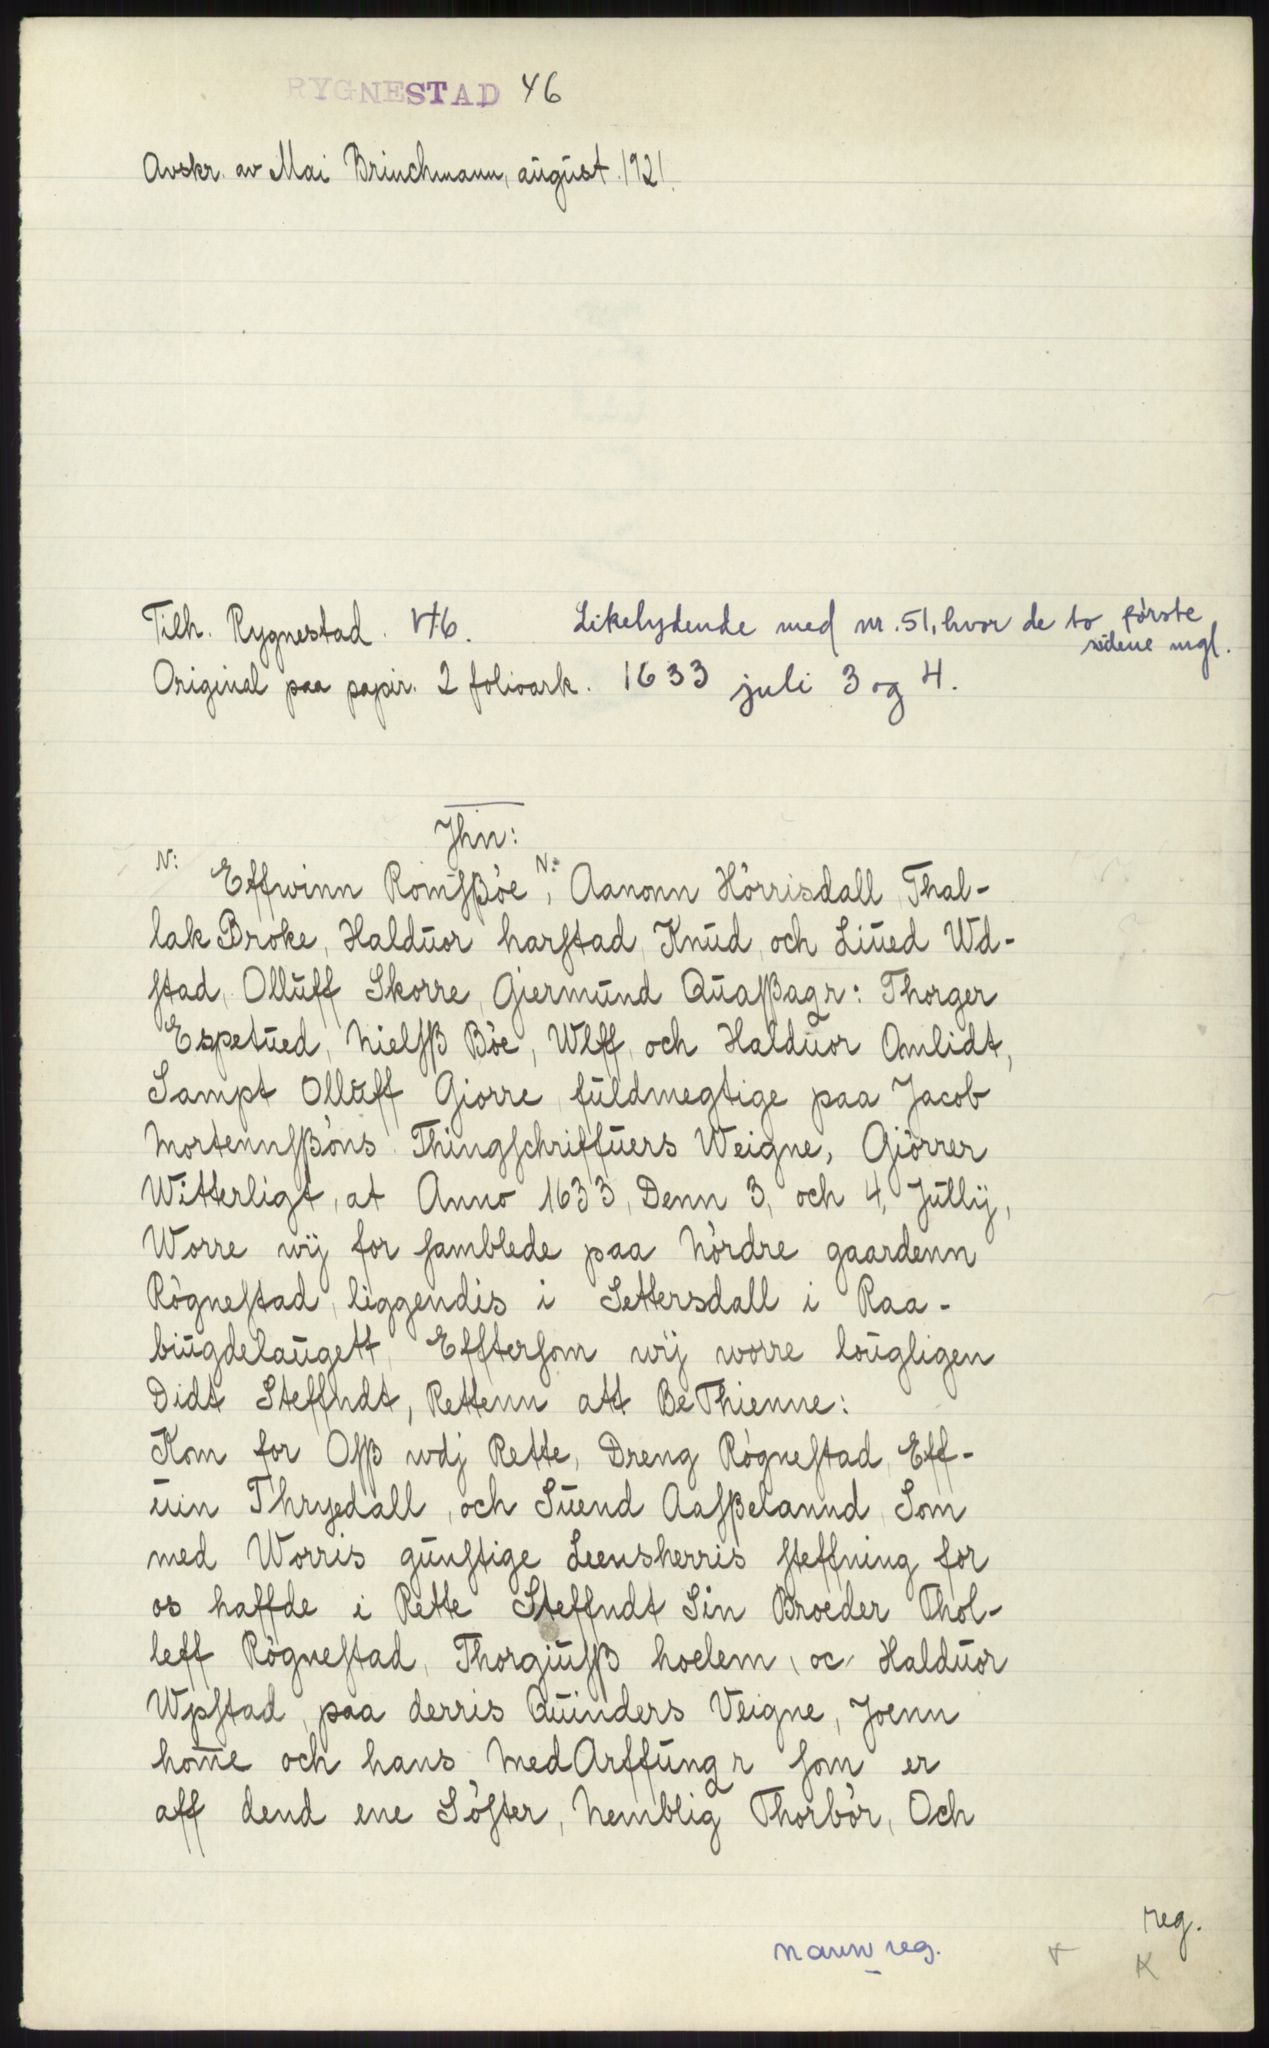 RYGNESTAD 46
Avskr. av Mai Brinchmann, august 1921.
Tilh. Rygnestad. 46. Likelydende med nr. 51, hvor de to første
sidene mgl.
Original paa papir. 2 folioark. 1633 juli 3 og 4.
Jhn:
N: Effwinn Romſßøe N:, Aanonn Hörrisdall, Thal-
lak Broke, Halduor harſtad, Knud och Liued Wd-
ſtad, Olluff Skorre, Gjermund Quaſßagr: Thorger
Espetued, Nielſß Böe, Wlff och Halduor Omlidt,
Sampt Olluff Giorre fuldmegtige paa Jacob
Mortennſßöns Thingſchriffuers Weigne, Giörrer
Witterligt, at Anno 1633, Denn 3, och 4, Jullÿ,
Worre wÿ for ſamblede paa Nördre gaardenn
Rögneſtad, liggendis i Settersdall i Raa-
biugdelaugett, Effterſom wÿ worre lougligen
Didt Steffndt, Rettenn att BeThienne:
Kom for Oſß wdj Rette, Dreng Rögneſtad, Eff-
uin Thryedall, och Suend Aaſßelannd, Som
med Worris gunſtige Leensherris ſteffning for
os haffde i Rette Steffndt Sin Broeder Thol-
leff Rögneſtad, Thorgiuſß hoelem, oc Halduor
Wpſtad, paa derris Quinders Veigne, Joenn
hom̄e och hans MedArffungr ſom er
aff dend ene Söſter, Nemblig Thorbör, Och
reg.
navnreg.
K